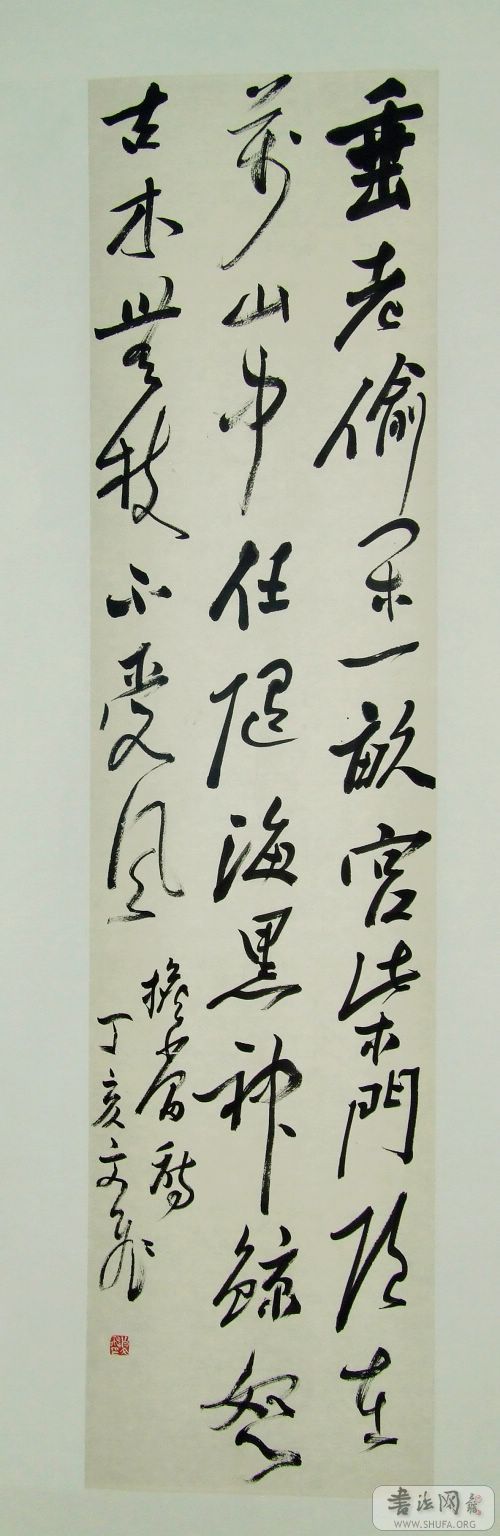 垂老偷閑一畝宮柴門隱在
萬山中任隨海黑神鯨怒
古木無枝不受風
擔當
丁亥文
書法网
WWW.SHUFA.ORG